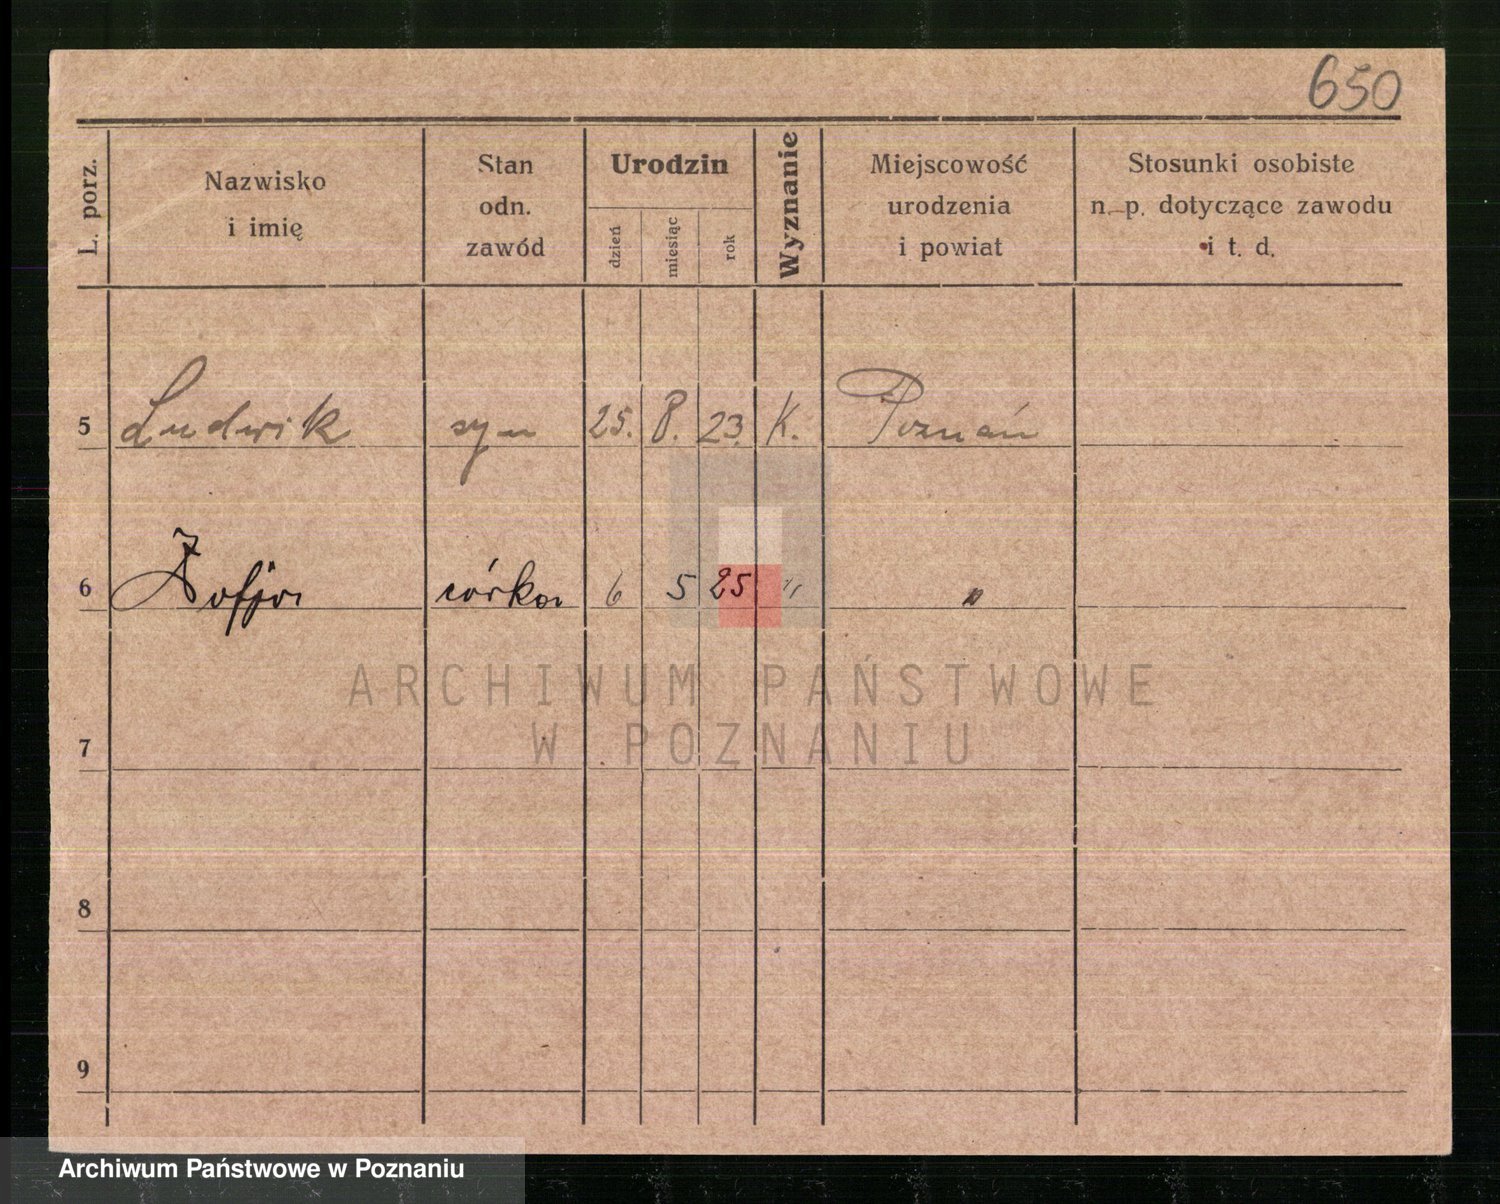 650
L. porz.
Nazwisko
i imię
Stan
odn.
zawód
Urodzin
dzień
miesiąc
rok
Wyznanie
Miejscowość
urodzenia
i powiat
Stosunki osobiste
n. p. dotyczące zawodu
i t. d.
5 Ludwik syn 25. 8. 23. K. Poznań
6 Zofja córka 6 5 25 " "
ARCHIWUM PAŃSTWOWE
W POZNANIU
7
8
9
Archiwum Państwowe w Poznaniu